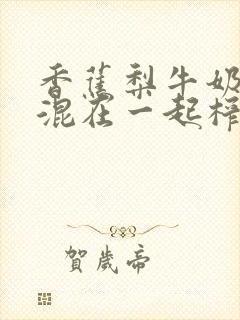 香蕉梨牛奶
混在一起榨
賀歲帝